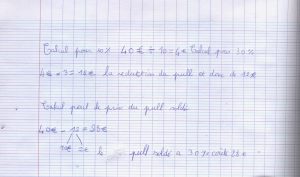 Calcul pour 10% 40€ ÷ 10 = 4€ Calcul pour 30%
4€ × 3 = 12€ la réduction du pull et donc de 12€
Calcul pour le prix du pull soldé
40€ - 12 = 28€
10€ 2€ le pull soldé a 30% coûte 28€